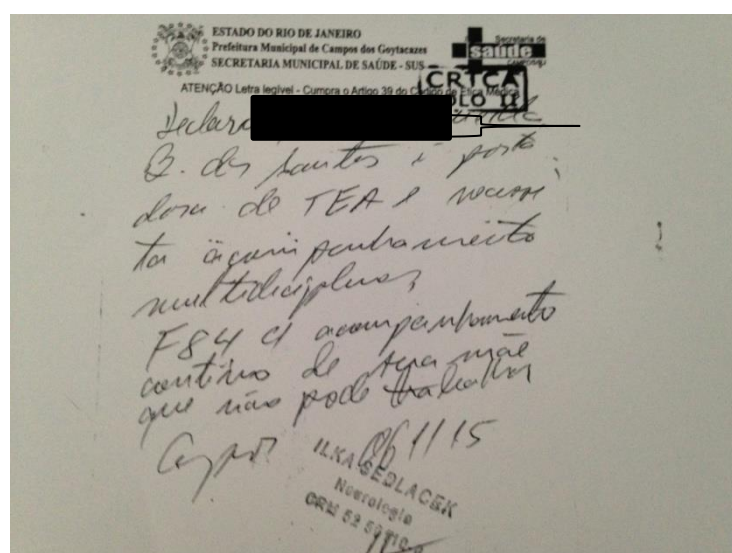 ESTADO DO RIO DE JANEIRO
Prefeitura Municipal de Campos dos Goytacazes
SECRETARIA MUNICIPAL DE SAÚDE - SUS
Secretaria de
saúde
CAMPOS/RJ
CRTCA
POLO II
ATENÇÃO Letra legível - Cumpra o Artigo 39 do Código de Ética Médica
Declaro
Q. dos Santos é porta
dora de TEA e necessi
ta acompanhamento
multidisciplinar,
F84 c/ acompanhamento
contínuo de sua mãe
que não pode trabalhar
Campos 06/1/15
ILKA SEDLACEK
Neurologia
CRM 52